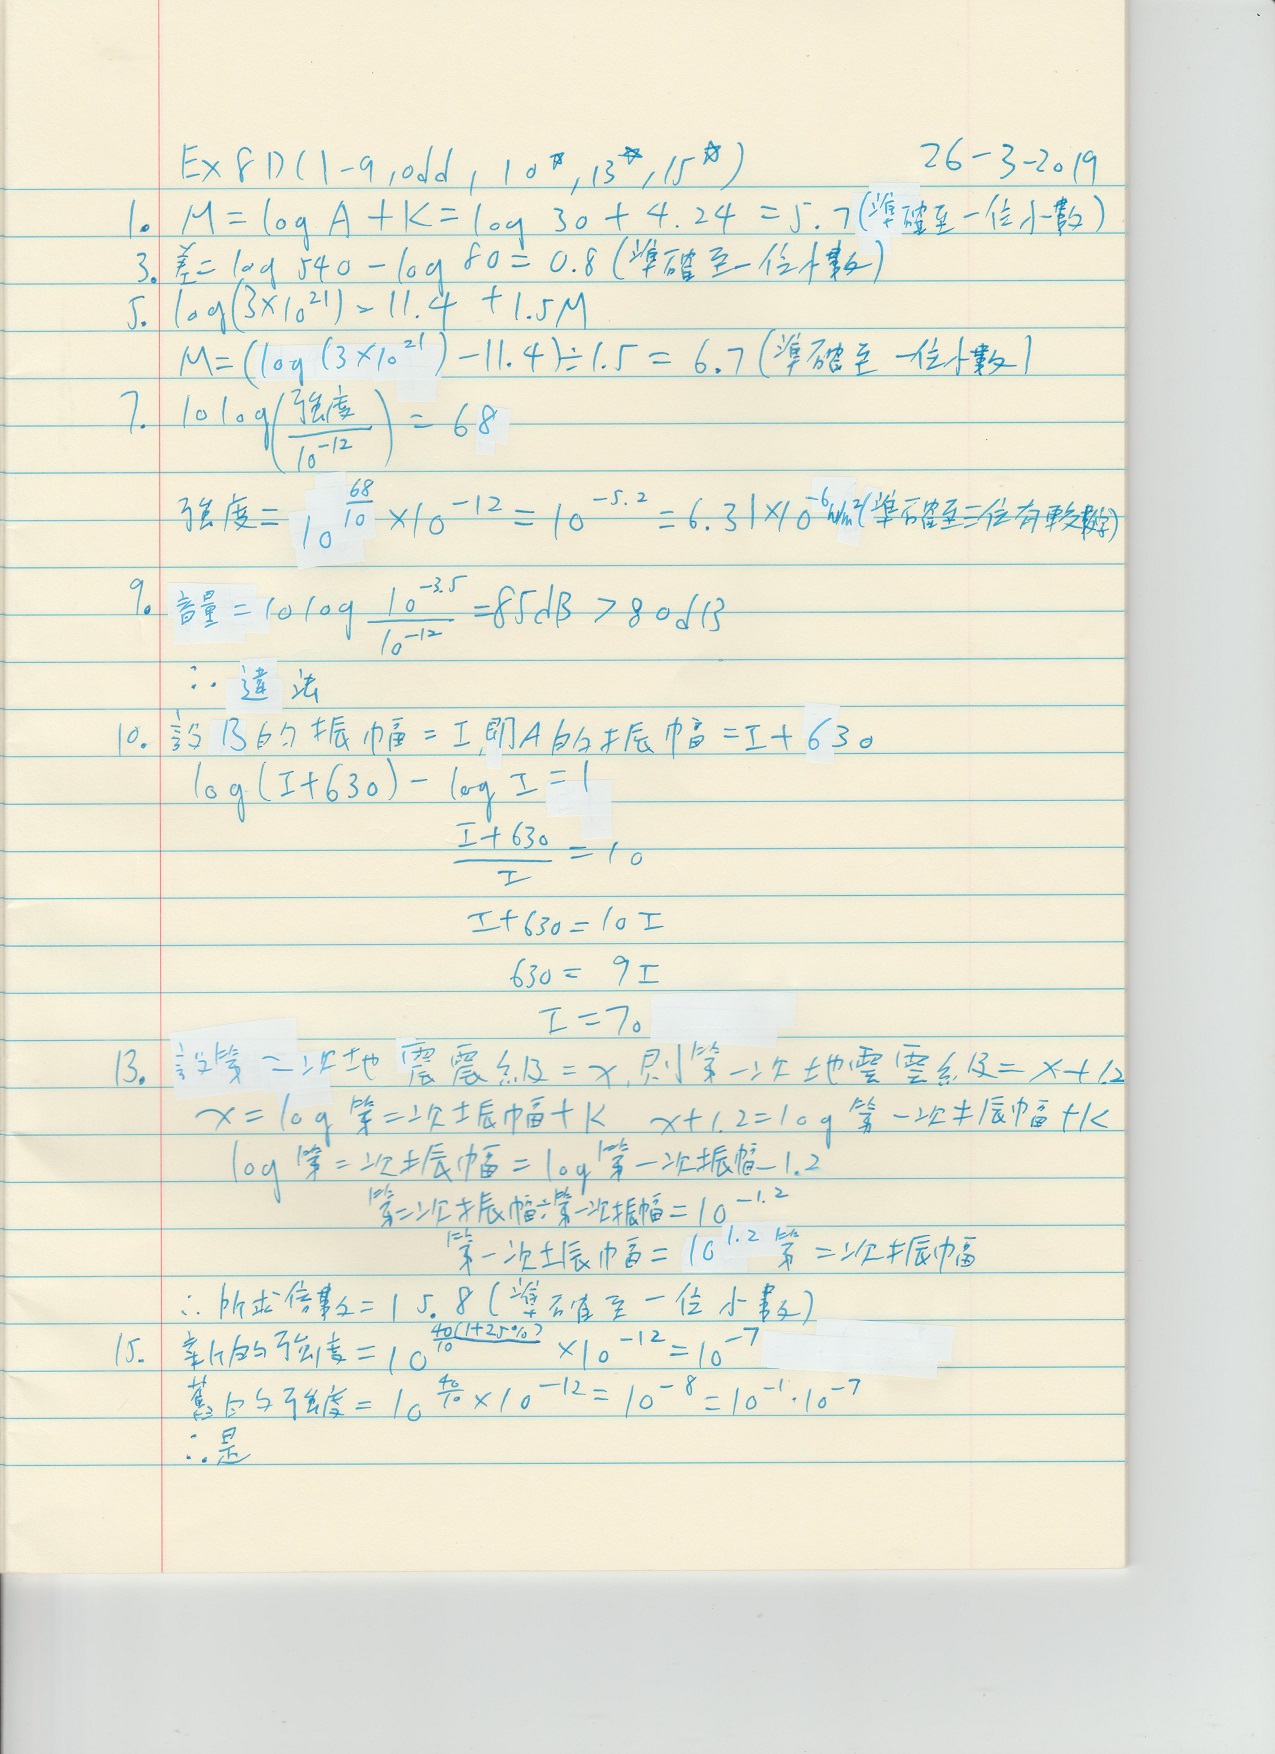 Ex 8D(1-9,odd, 10*, 13*, 15*) 26-3-2019
1. M = log A + K = log 30 + 4.24 = 5.7 (準確至一位小數)
3. 差 = log 540 - log 80 = 0.8 (準確至一位小數)
5. log(3×10²¹) = 11.4 + 1.5M
M = (log(3×10²¹) - 11.4) ÷ 1.5 = 6.7 (準確至一位小數)
7. 10 log(強度/10⁻¹²) = 68
強度 = 10^(68/10) × 10⁻¹² = 10^(-5.2) = 6.31×10⁻⁶ W/m² (準確至三位有效數字)
9. 音量 = 10 log 10^(-3.5)/10⁻¹² = 85dB > 80dB
∴ 違法
10. 設B的振幅 = I, 即A的振幅 = I + 630
log(I+630) - log I = 1
(I+630)/I = 10
I+630 = 10I
630 = 9I
I = 70
13. 設第二次地震震級 = x, 則第一次地震震級 = x+1.2
x = log 第二次振幅 + K x+1.2 = log 第一次振幅 + K
log 第二次振幅 = log 第一次振幅 - 1.2
第二次振幅 ÷ 第一次振幅 = 10^(-1.2)
第一次振幅 = 10^(1.2) 第二次振幅
∴ 所求倍數 = 15.8 (準確至一位小數)
15. 新的強度 = 10^(40(1+25%)/10) × 10⁻¹² = 10⁻⁷
舊的強度 = 10^(40/10) × 10⁻¹² = 10⁻⁸ = 10⁻¹·10⁻⁷
∴ 是